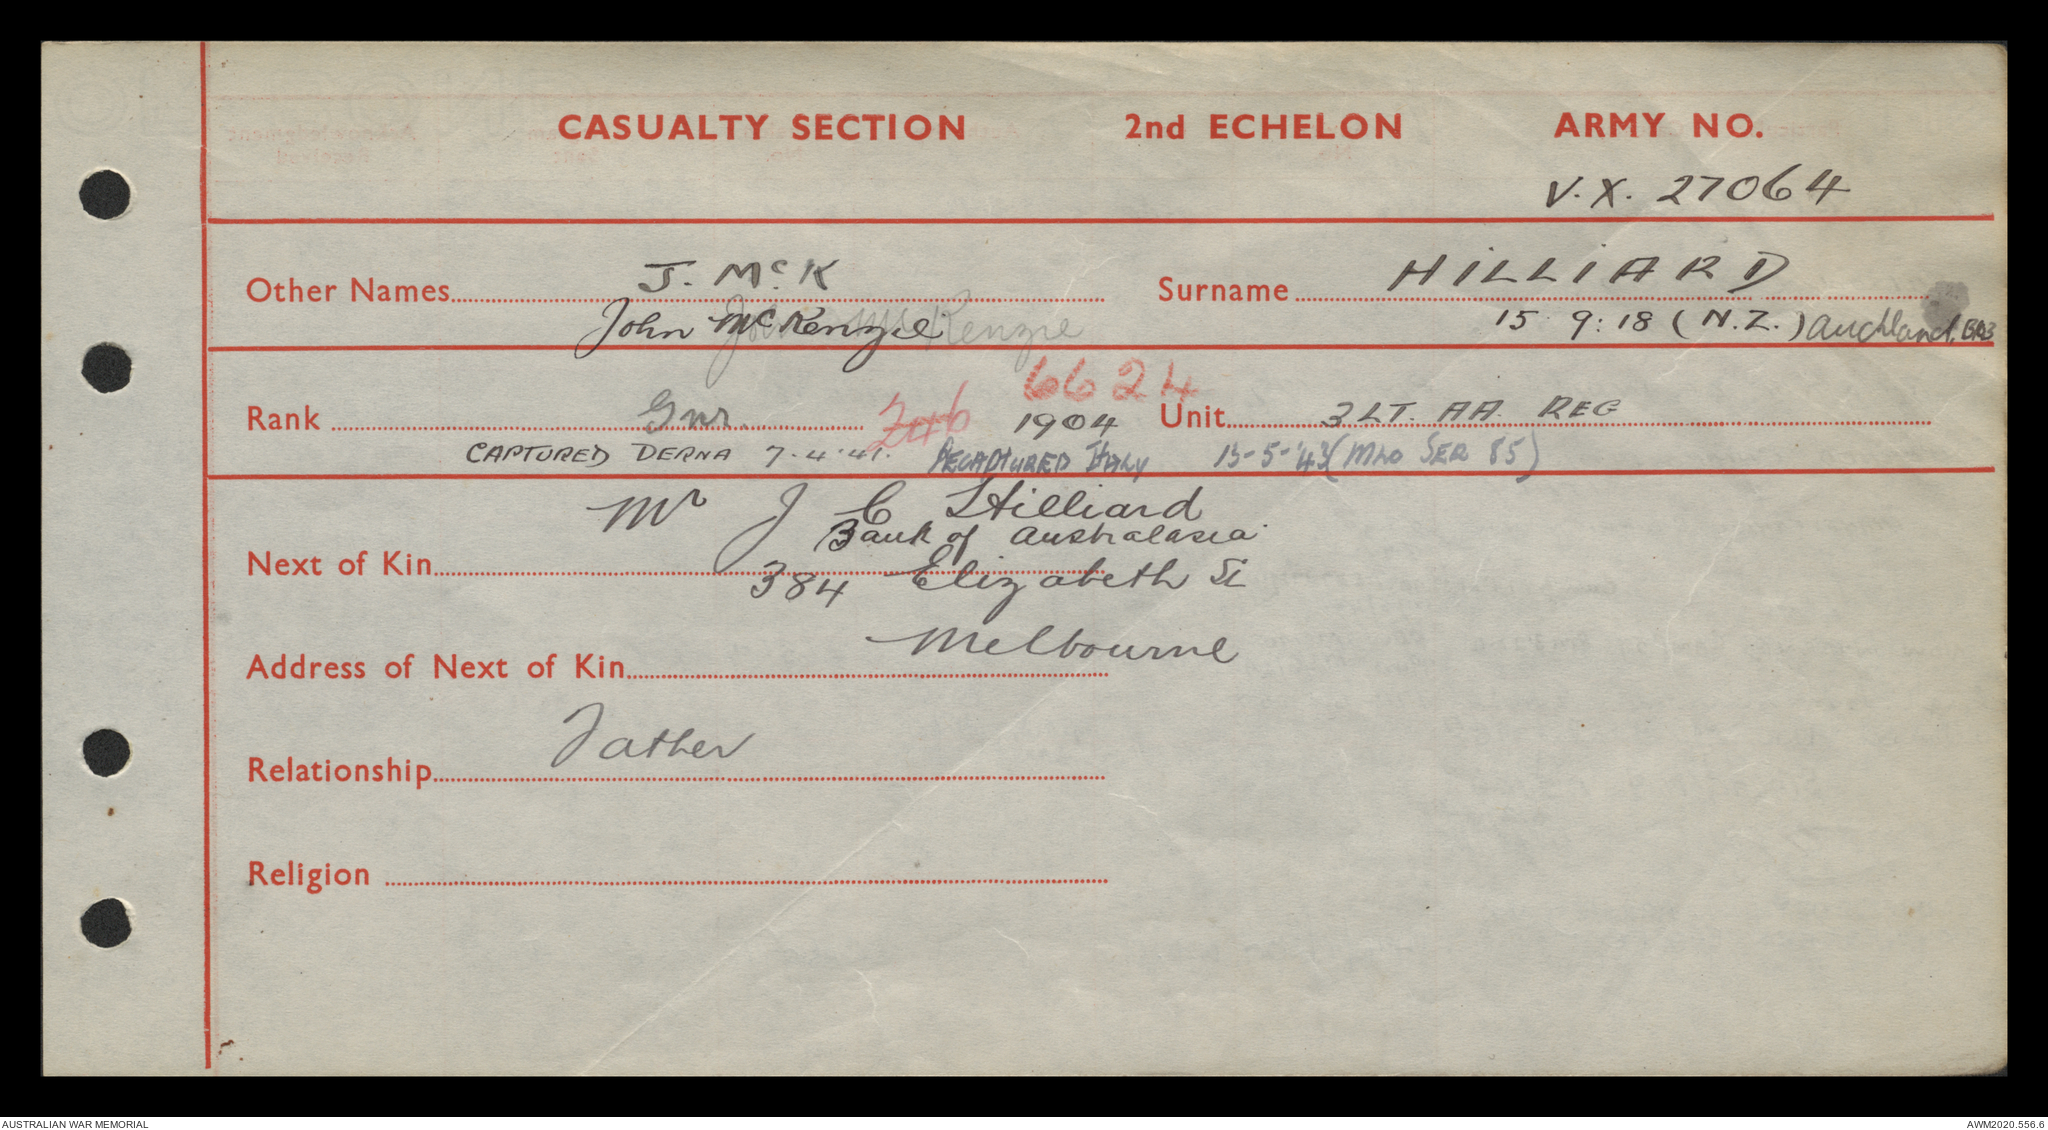 CASUALTY SECTION 2nd ECHELON ARMY NO.
V.X. 27064
Other Names J. McK Surname HILLIARD
John McKenzie 15 9:18 (N.Z.) Auckland
6624
Rank Gnr. 1904 Unit 3 LT. AA. REG
CAPTURED DERNA 7.4.41. RECAPTURED ITALY 13-5-'43 (MLO SER 85)
Mr J C Hilliard
Bank of Australasia
Next of Kin 384 Elizabeth St
Melbourne
Address of Next of Kin
Relationship Father
Religion
AUSTRALIAN WAR MEMORIAL AWM2020.556.6